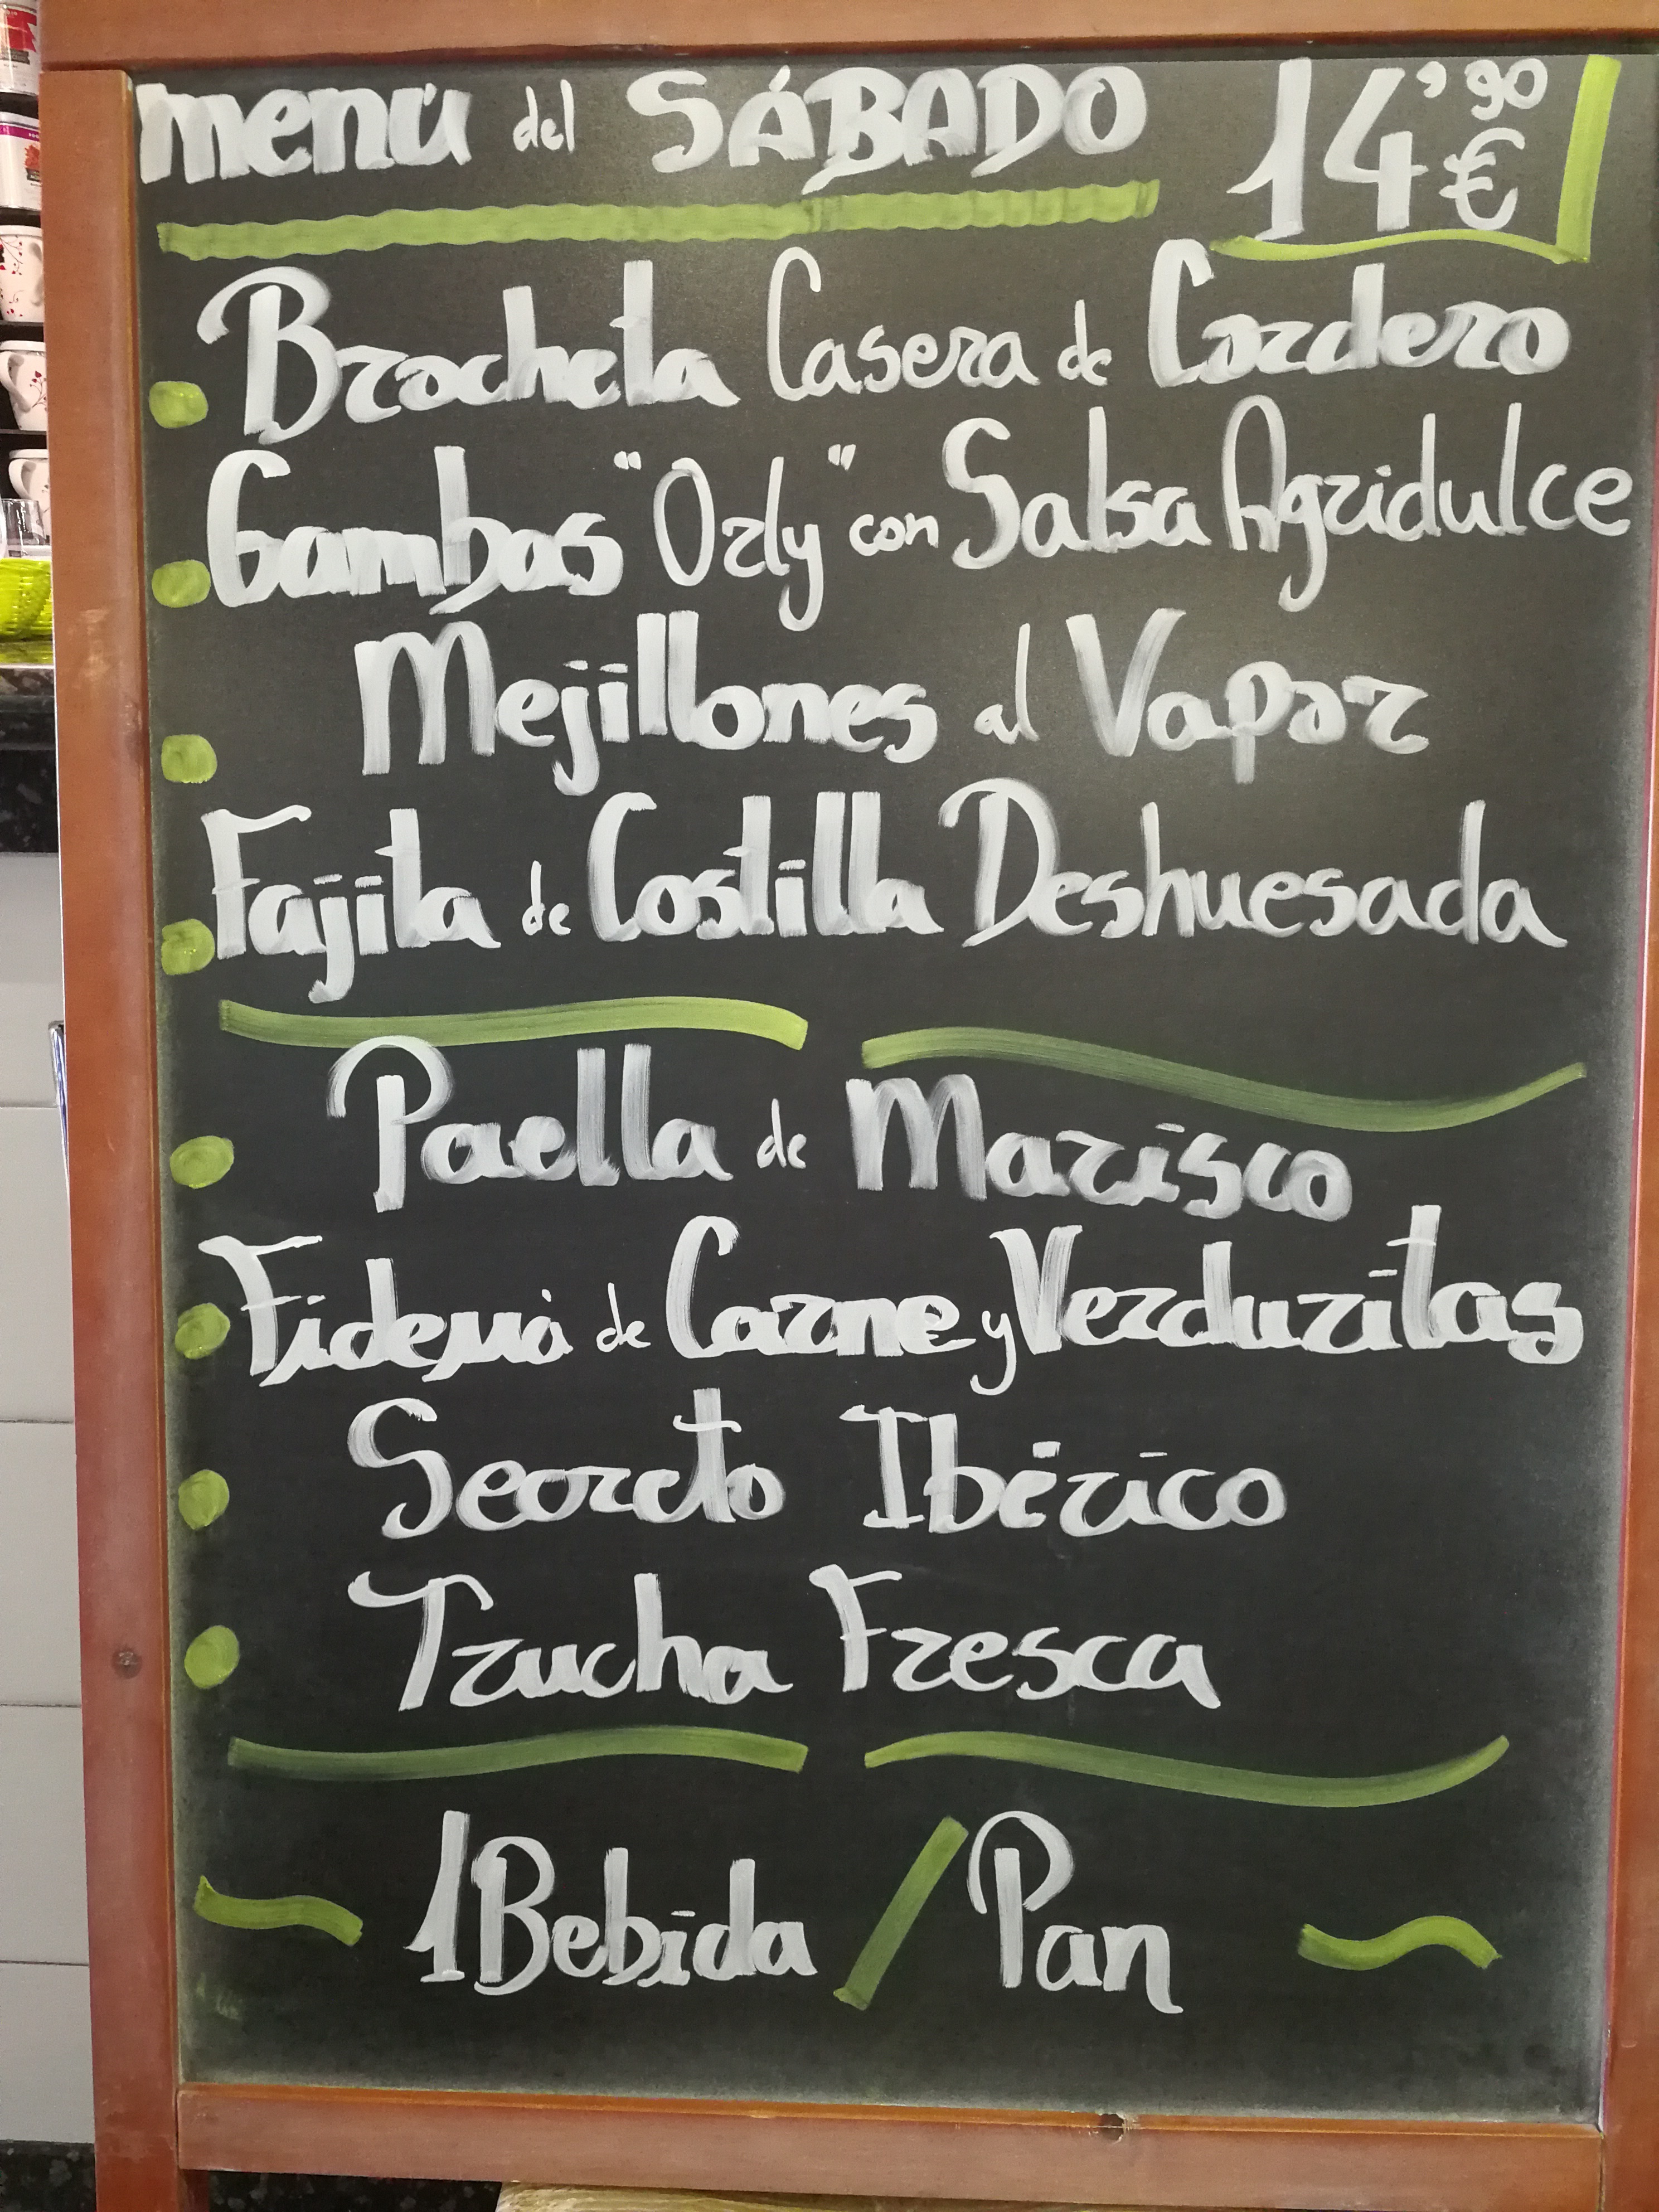 menú del SÁBADO 14'90 €
Brocheta Casera de Cordero
Gambas "Orly" con Salsa Agridulce
Mejillones al Vapor
Fajita de Costilla Deshuesada
Paella de Marisco
Fideuà de Carne y Verduritas
Secreto Ibérico
Trucha Fresca
1 Bebida / Pan